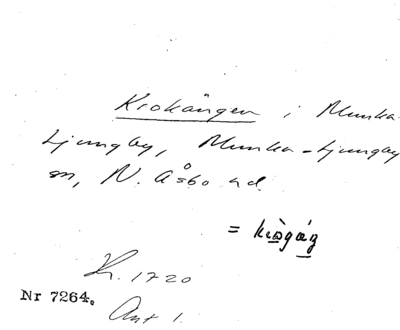 Krokängen i Munka
Ljungby, Munka-Ljungby
sn, N. Åsbo hd.
= 
Kr. 1720
Nr 7264.
Ant 1.